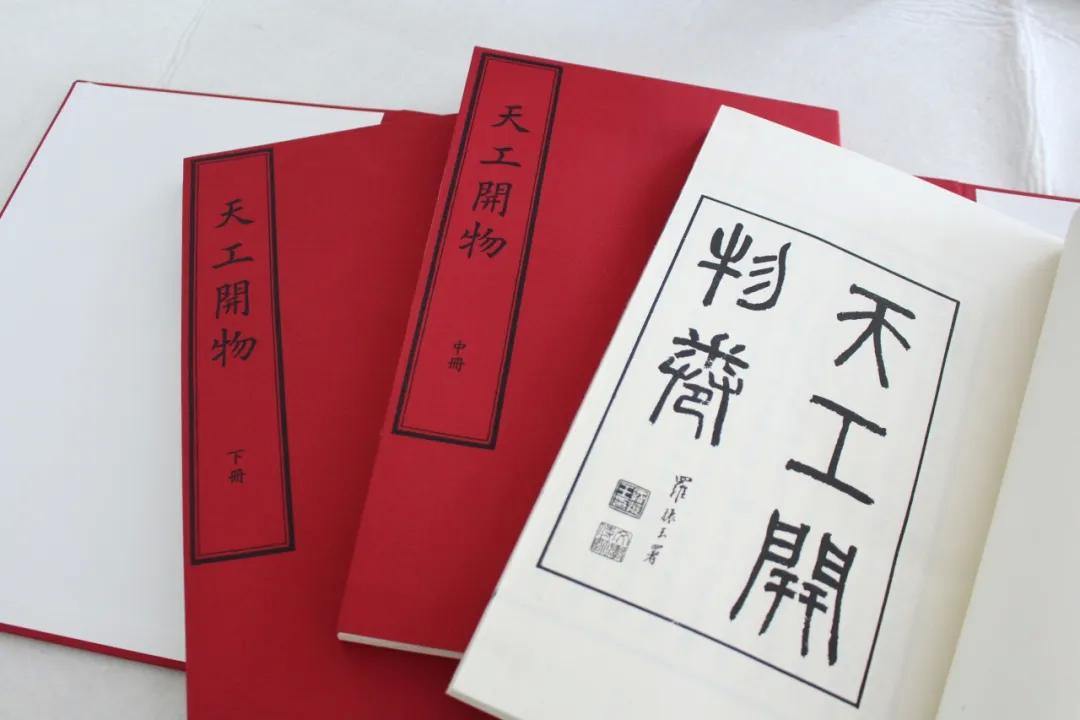 天工開物
下冊
天工開物
中冊
天工開
物卷
羅振玉署